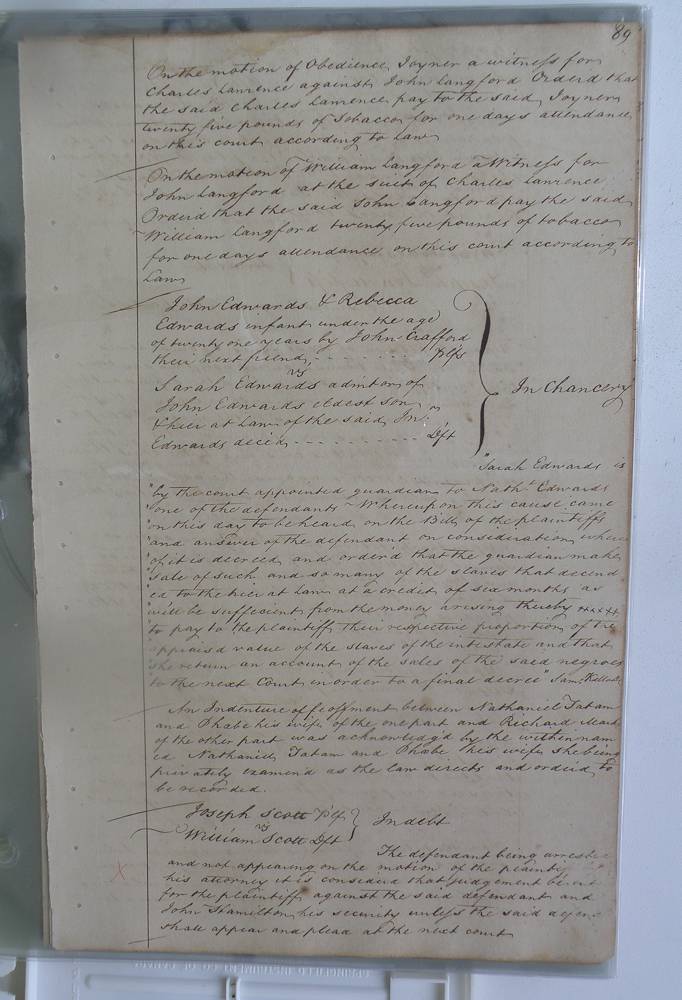 89
On the motion of Obedience Joyner a witness for
Charles Lawrence against John Langford Orderd that
the said Charles Lawrence pay to the said Joyner
twenty five pounds of tobacco for one days attendance
on this court according to Law
On the motion of William Langford a Witness for
John Langford at the suit of Charles Lawrence
Orderd that the said John Langford pay the said
William Langford twenty five pounds of tobacco
for one days attendance on this court according to
Law
John Edwards & Rebecca
Edwards infants under the age
of twenty one years by John Crafford
their next friend - - - - - - - Plfs
vs
Sarah Edwards admtor of
John Edwards eldest son
& heir at Law of the said Jno.
Edwards decd. - - - - - - - - - - Dft
In Chancery
"Sarah Edwards is
"by the court appointed guardian to Nathl. Edwards
"one of the defendants - Whereupon this cause came
"on this day to be heard on the Bill of the plaintiffs
"and answer of the defendant on consideration where
"of it is decreed and order'd that the guardian make
"sale of such and so many of the slaves that decend
"ed to the heir at Law at a credit of six months as
"will be sufficient from the money arising thereby xxxxx
"to pay to the plaintiffs their respective proportion of the
"appraisd value of the slaves of the intestate and that
"she return an account of the sales of the said negroes
"to the next Court in order to a final decree" Saml. Kello
An Indenture of feoffment between Nathaniel Tatam
and Phabe his wife of the one part and Richard
of the other part was acknowledg'd by the within nam
ed Nathaniel Tatam and Phabe his wife she being
privately examin'd as the law directs and orderd to
be recorded.
Joseph Scott Plf
vs
William Scott Dft
In debt
The defendant being arrested
and not appearing on the motion of the plaintiff
his attorney it is considerd that judgement be ent
for the plaintiff against the said defendant and
John Hamilton his security unless the said defen
shall appear and plead at the next court
X